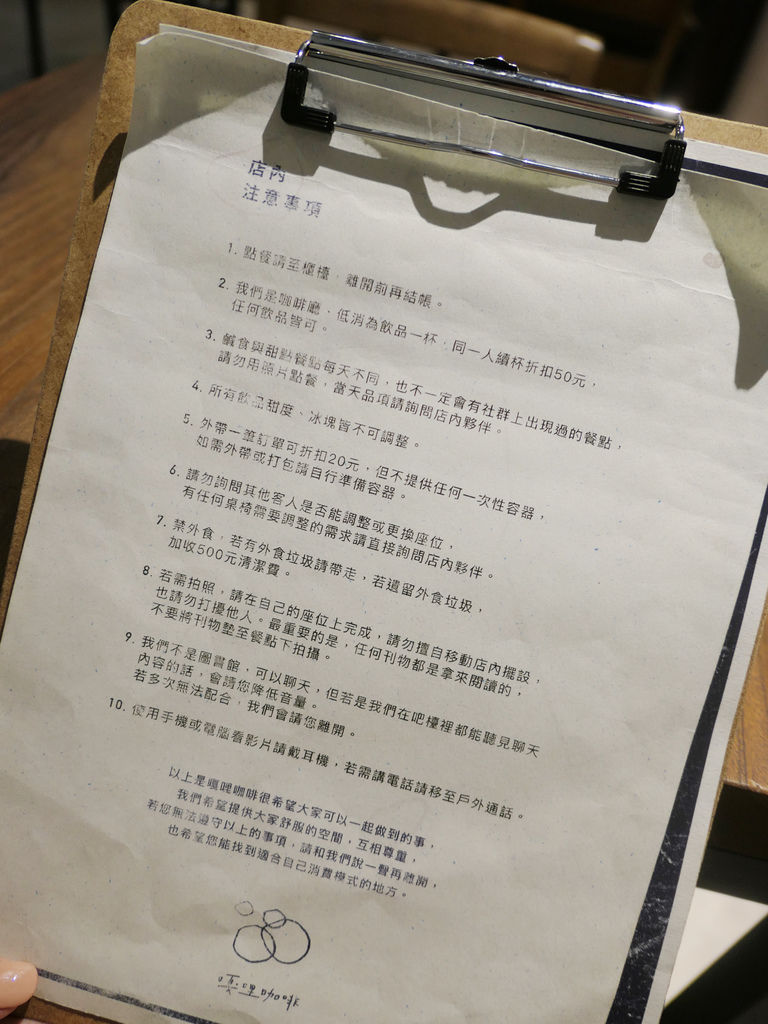 店內
注意事項
1. 點餐請至櫃檯，離開前再結帳。
2. 我們是咖啡廳、低消為飲品一杯，同一人續杯折扣50元，
任何飲品皆可。
3. 鹹食與甜點餐點每天不同，也不一定會有社群上出現過的餐點，
請勿用照片點餐，當天品項請詢問店內夥伴。
4. 所有飲品甜度、冰塊皆不可調整。
5. 外帶一筆訂單可折扣20元，但不提供任何一次性容器，
如需外帶或打包請自行準備容器。
6. 請勿詢問其他客人是否能調整或更換座位，
有任何桌椅需要調整的需求請直接詢問店內夥伴。
7. 禁外食，若有外食垃圾請帶走，若遺留外食垃圾，
加收500元清潔費。
8. 若需拍照，請在自己的座位上完成，請勿擅自移動店內擺設，
也請勿打擾他人。最重要的是，任何刊物都是拿來閱讀的，
不要將刊物墊至餐點下拍攝。
9. 我們不是圖書館，可以聊天，但若是我們在吧檯裡都能聽見聊天
內容的話，會請您降低音量。
若多次無法配合，我們會請您離開。
10. 使用手機或電腦看影片請戴耳機，若需講電話請移至戶外通話。
以上是嘎哩咖啡很希望大家可以一起做到的事，
我們希望提供大家舒服的空間，互相尊重，
若您無法遵守以上的事項，請和我們說一聲再離開，
也希望您能找到適合自己消費模式的地方。